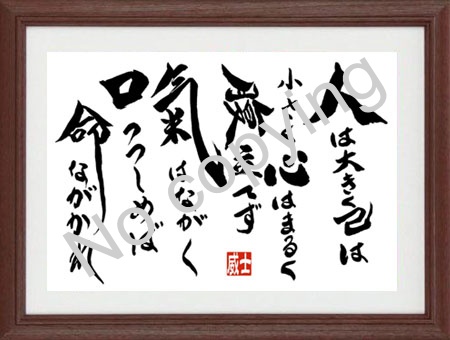 人は大きく己は
小さく心はまるく
腹立てず
氣はながく
口つつしめば
命ながかれ
威士
No copying